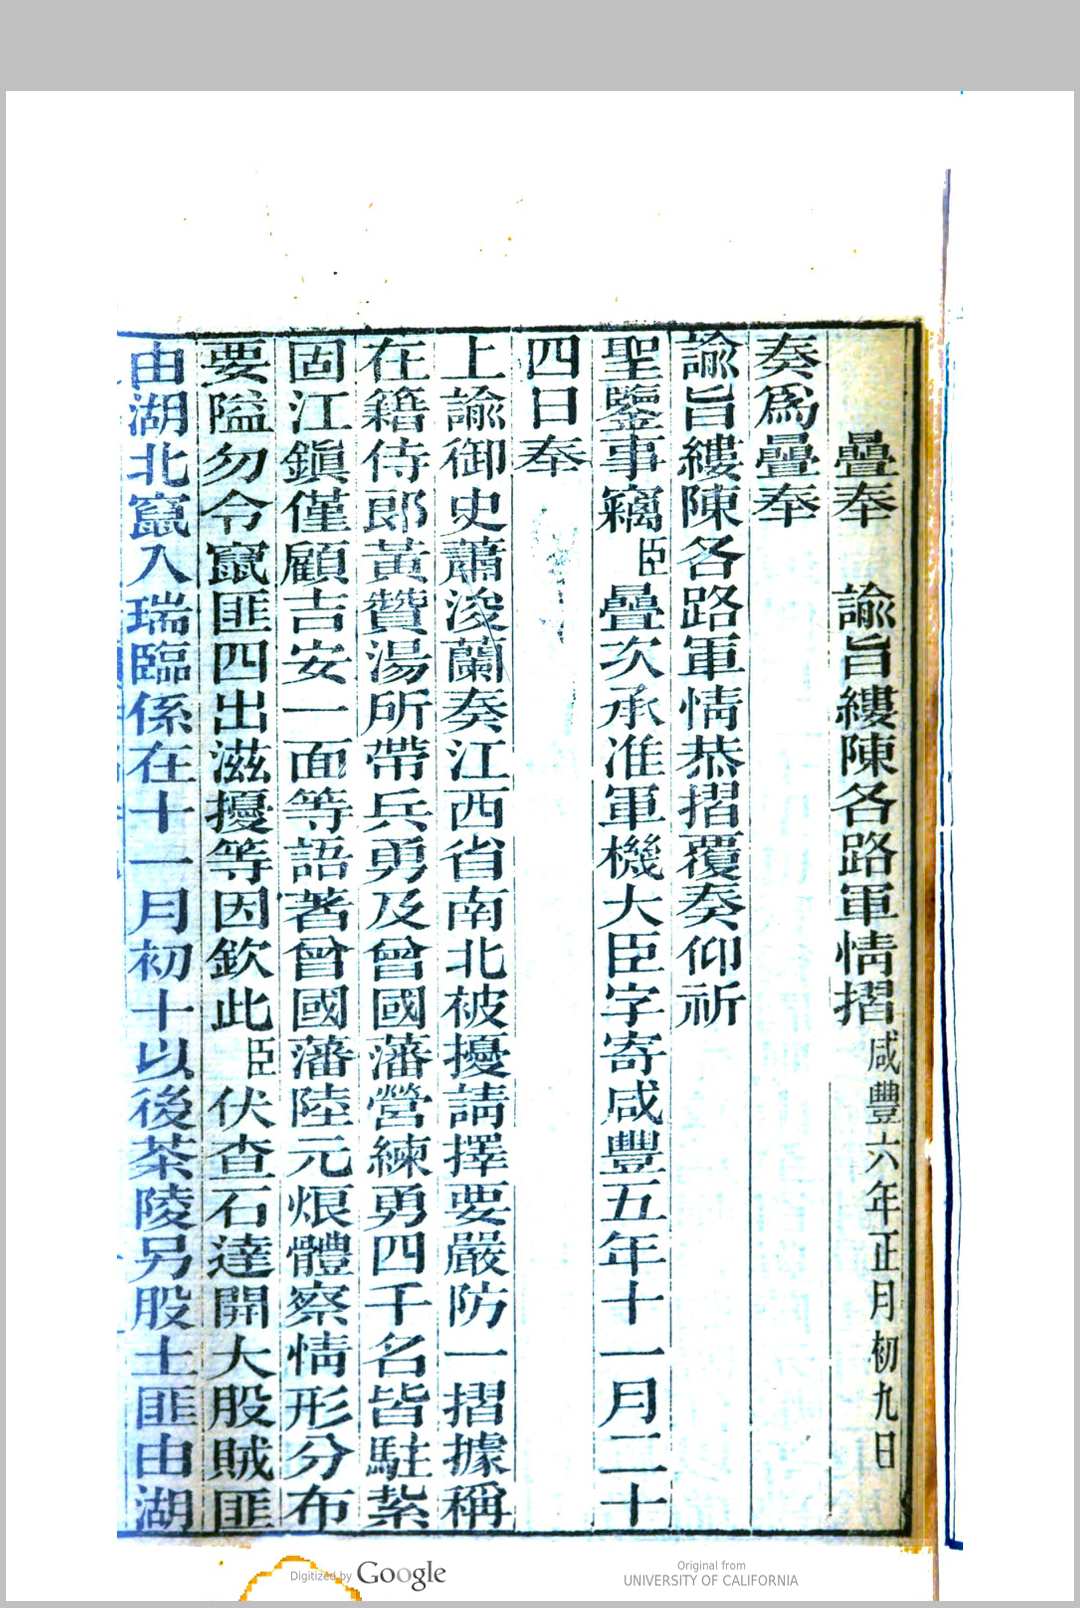 疊奉　諭旨縷陳各路軍情摺咸豐六年正月初九日
奏爲疊奉
諭旨縷陳各路軍情恭摺覆奏仰祈
聖鑒事竊臣疊次承准軍機大臣字寄咸豐五年十一月二十
四日奉
上諭御史蕭浚蘭奏江西省南北被擾請擇要嚴防一摺據稱
在籍侍郎黃贊湯所帶兵勇及曾國藩營練勇四千名皆駐紮
固江鎭僅顧吉安一面等語著曾國藩陸元烺體察情形分布
要隘勿令竄匪四出滋擾等因欽此臣伏查石達開大股賊匪
由湖北竄入瑞臨係在十一月初十以後茶陵另股土匪由湖
Digitized by Google
Original from
UNIVERSITY OF CALIFORNIA